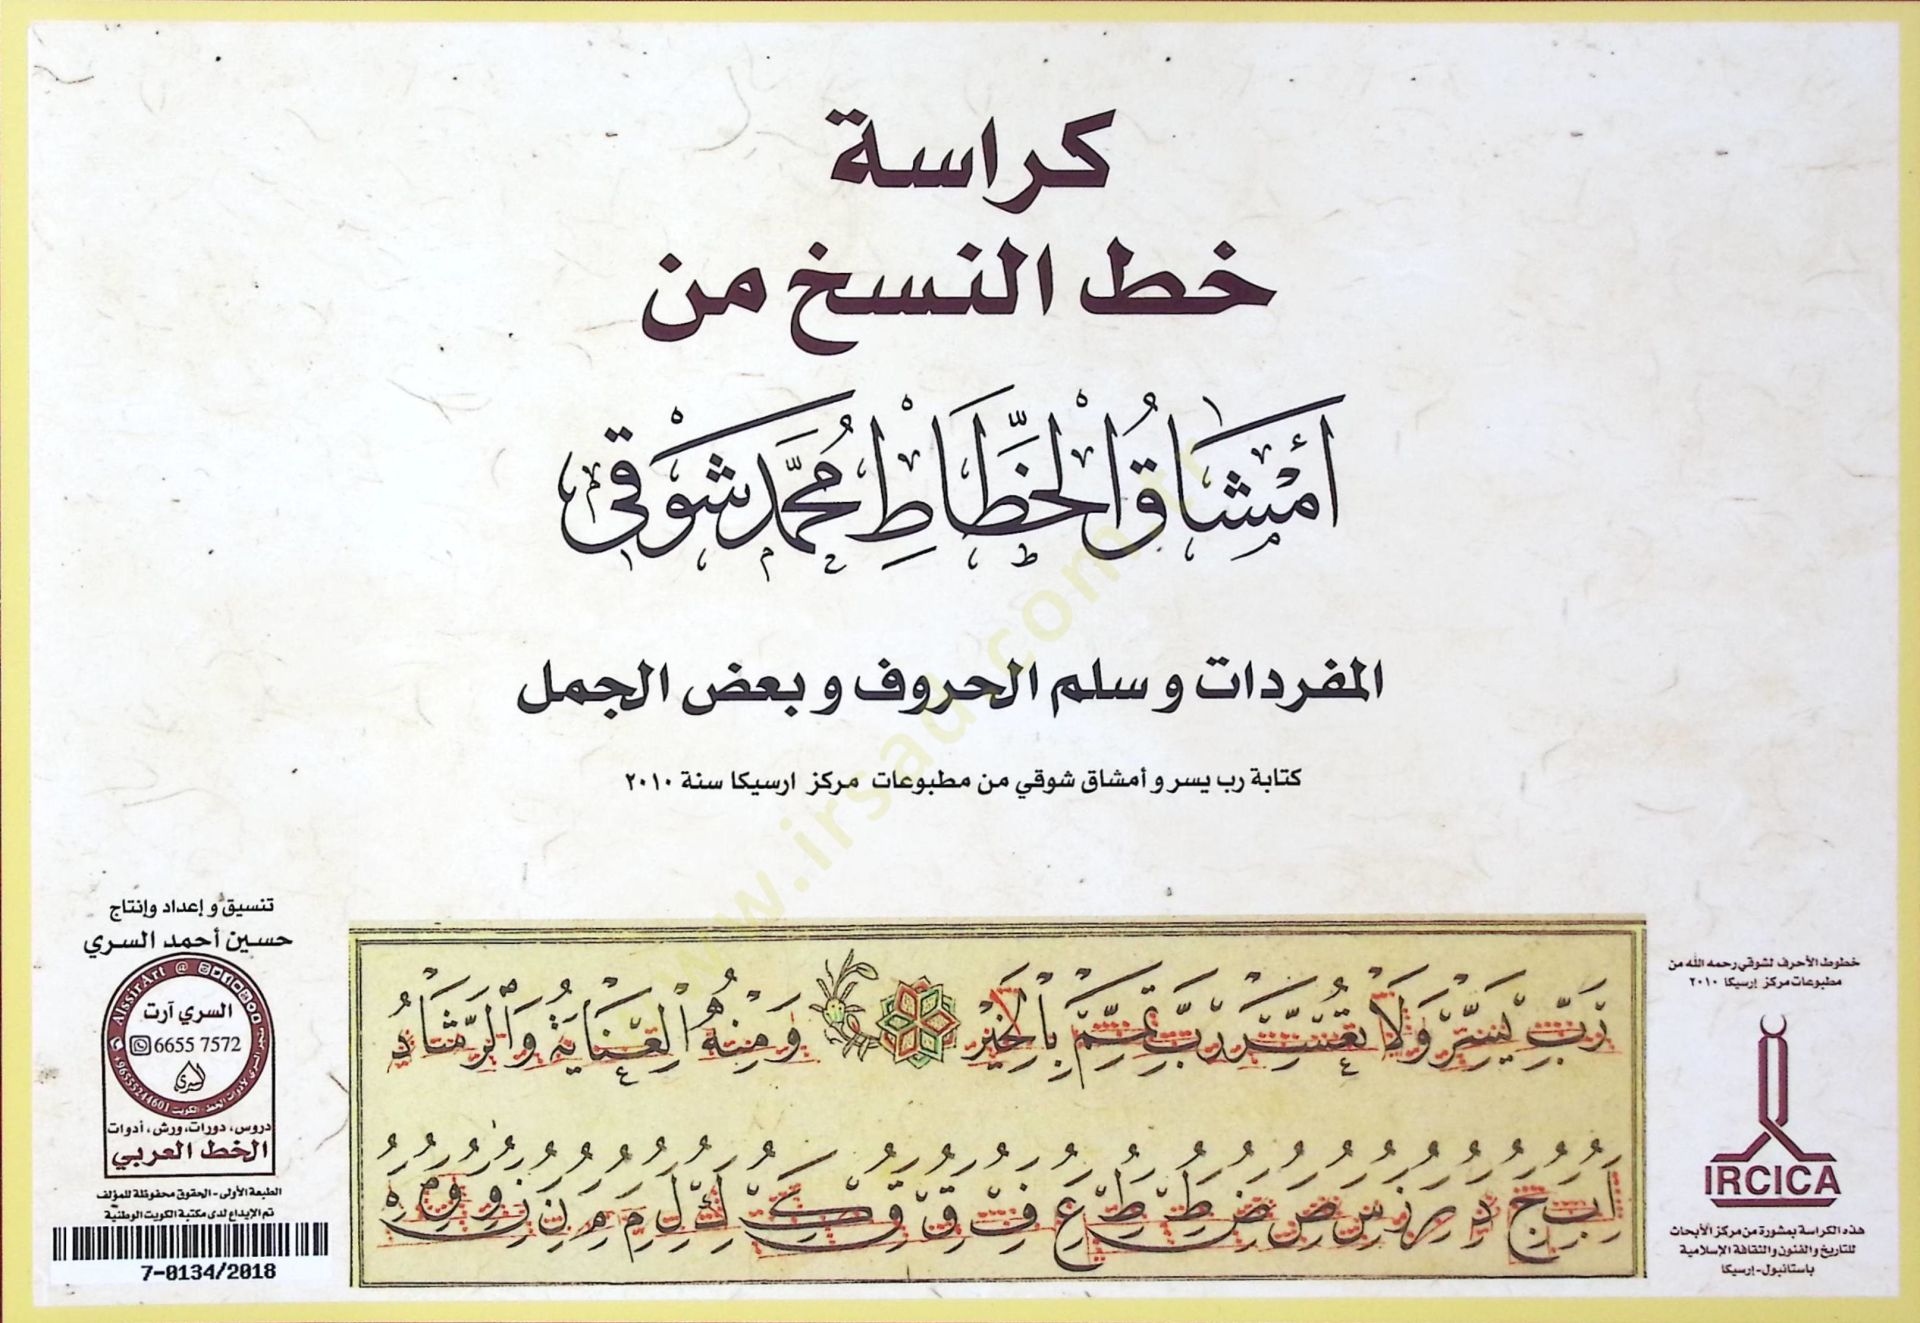 كراسة
خط النسخ من
أَمْشَاقُ الْخَطَّاطِ مُحَمَّد شَوْقي
المفردات و سلم الحروف و بعض الجمل
كتابة رب يسر و أمشاق شوقي من مطبوعات مركز ارسيكا سنة ٢٠١٠
تنسيق و إعداد وإنتاج
حسين أحمد السري
AlssirArt @
السري آرت
6655 7572
السري
+96555244601
دروس، دورات، ورش، أدوات
الخط العربي
الطبعة الأولى - الحقوق محفوظة للمؤلف
تم الإيداع لدى مكتبة الكويت الوطنية
7-0134/2018
رَبِّ يَسِّرْ وَلَا تُعَسِّرْ رَبِّ تَمِّمْ بِالْخَيْرِ وَمِنْهُ الْعِنَايَةُ وَالرَّشَادُ
ا ب ج د ر س ص ط ع ف ق ك ل م ن و ه
خطوط الأحرف لشوقي رحمه الله من
مطبوعات مركز إرسيكا ٢٠١٠
IRCICA
هذه الكراسة بمشورة من مركز الأبحاث
للتاريخ والفنون والثقافة الإسلامية
باستانبول - إرسيكا
www.irsad.com.tr